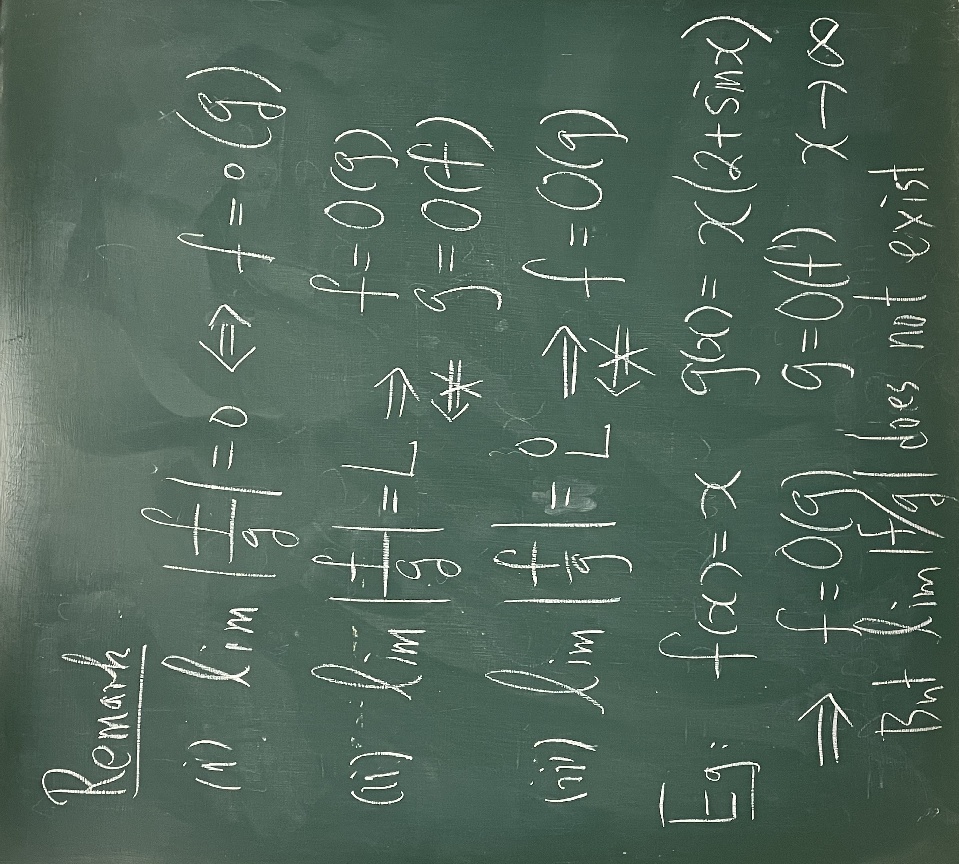 Remark
(i) lim |f/g| = 0 ⇔ f = o(g)
(ii) lim |f/g| = L ⇒ f = O(g)
⇍ g = O(f)
(iii) lim |f/g| = 0 ⇒ f = O(g)
L ⇍
Eg: f(x) = x g(x) = x(2+sinx)
⇒ f = O(g) g = O(f) x → ∞
But lim |f/g| does not exist